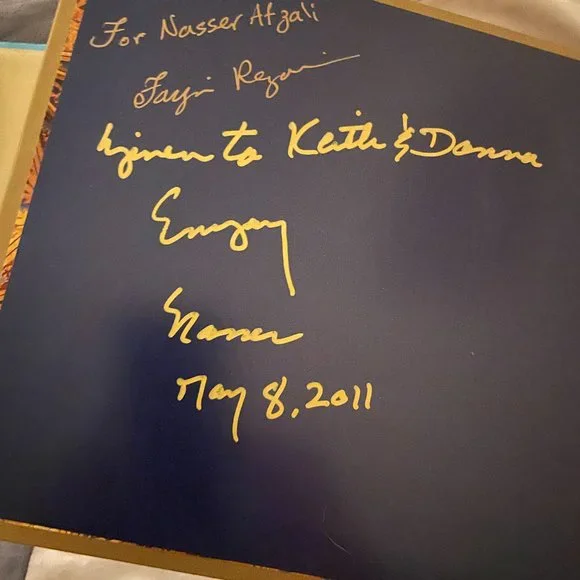 For Nasser Afzali
given to Keith & Donna
Enjoy
Nasser
May 8, 2011